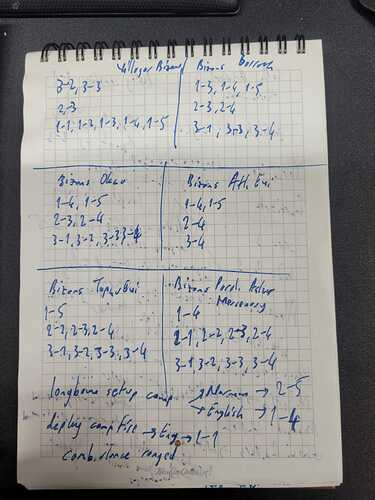 Villager Bizans
3-2, 3-3
2-3
1-1, 1-2, 1-3, 1-4, 1-5
Bizans
1-3, 1-4, 1-5
2-3, 2-4
3-1, 3-3, 3-4
Bizans Okçu
1-4, 1-5
2-3, 2-4
3-1, 3-2, 3-3, 3-4
Bizans Atlı Eui
1-4, 1-5
2-4
3-4
Bizans Topçu Eui
1-5
2-2, 2-3, 2-4
3-1, 3-2, 3-3, 3-4
Bizans Paralı Asker
Mercenary
1-4
2-1, 2-2, 2-3, 2-4
3-1, 3-2, 3-3, 3-4
longbow setup camp
→ Norman → 2-5
→ English → 1-4
deploy campfire → Eng → 1-1
ranged